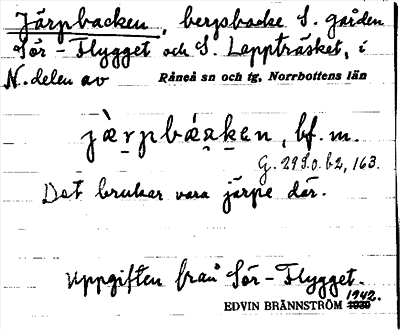 Järpbacken, bergsbacke S. gården
Sör-Flygget och S. Lappträsket, i
N. delen av Råneå sn och tg, Norrbottens län
jàrpbáƙen, bf. m.
G. 29 S.O. b2, 163.
Det brukar vara järpe där.
Uppgiften från Sör-Flygget.
EDVIN BRÄNNSTRÖM 1942.